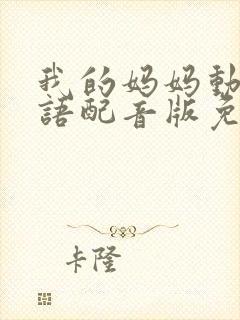 我的妈妈動
語配音版免
卡隆